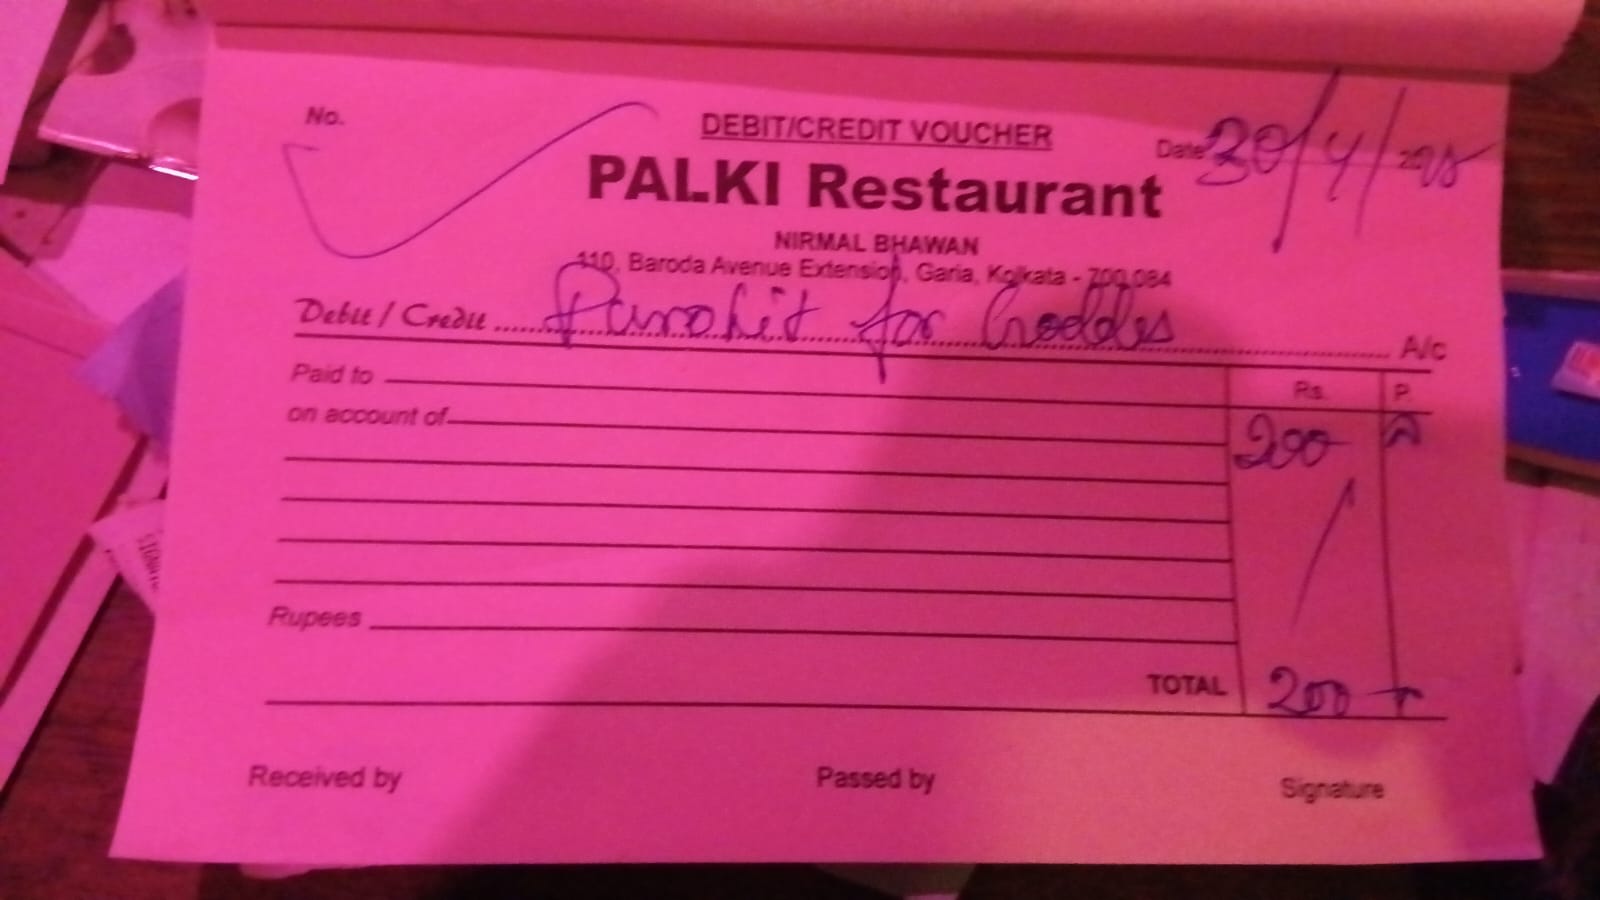 No.
DEBIT/CREDIT VOUCHER
Date 30/4/
PALKI Restaurant
NIRMAL BHAWAN
110, Baroda Avenue Extension, Garia, Kolkata - 700 084
Debit / Credit Purohit for Goddes A/c
Paid to
Rs. P.
on account of
200
Rupees
TOTAL 200
Received by Passed by Signature